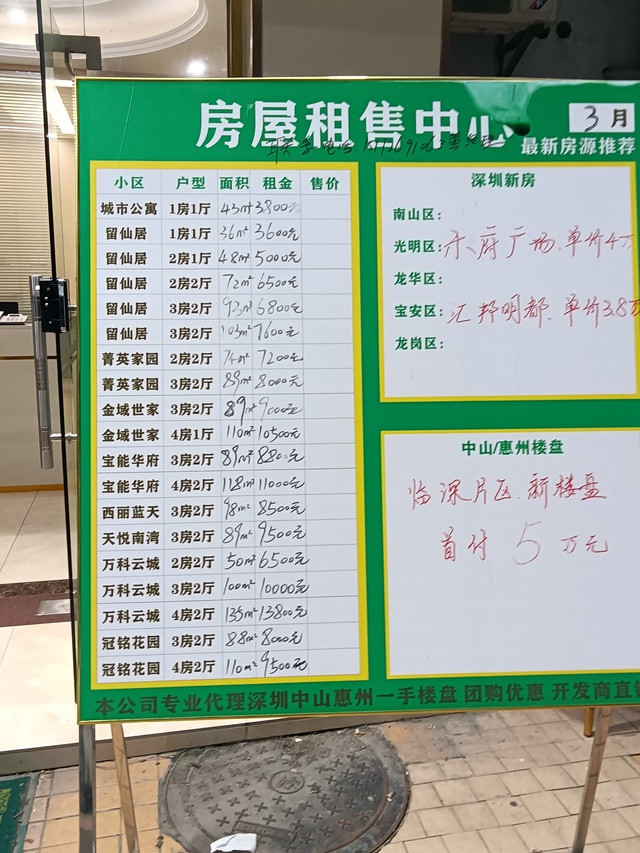 房屋租售中心
3月
最新房源推荐
小区 户型 面积 租金 售价
城市公寓 1房1厅 43m² 3800元
留仙居 1房1厅 36m² 3600元
留仙居 2房1厅 48m² 5000元
留仙居 2房2厅 72m² 6500元
留仙居 3房2厅 93m² 6800元
留仙居 3房2厅 103m² 7600元
菁英家园 2房2厅 74m² 7200元
菁英家园 3房2厅 89m² 8000元
金域世家 3房2厅 89m² 9000元
金域世家 4房1厅 110m² 10500元
宝能华府 3房2厅 89m² 8800元
宝能华府 4房2厅 118m² 11000元
西丽蓝天 3房2厅 98m² 8500元
天悦南湾 3房2厅 89m² 9500元
万科云城 2房2厅 50m² 6500元
万科云城 3房2厅 100m² 10000元
万科云城 4房2厅 135m² 13800元
冠铭花园 3房2厅 88m² 8000元
冠铭花园 4房2厅 110m² 9500元
深圳新房
南山区：
光明区：乐府广场.单价4万
龙华区：
宝安区：汇邦明都.单价3.8万
龙岗区：
中山/惠州楼盘
临深片区.新楼盘
首付5万元
本公司专业代理深圳中山惠州一手楼盘 团购优惠 开发商直销